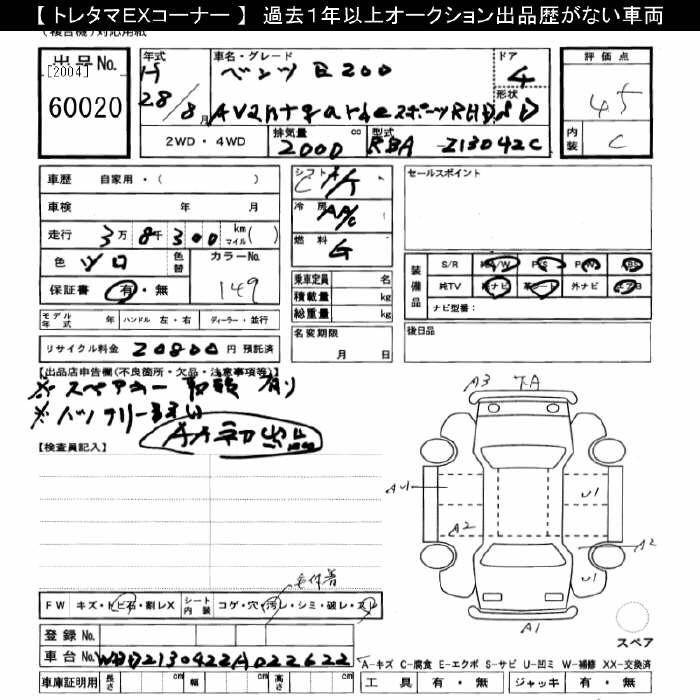 【 トレタマＥＸコーナー 】 過去１年以上オークション出品歴がない車両
(複合機)対応用紙
出 品 No.
[2004]
60020
年式
H 28/8 月
車名・グレード
ベンツ E 200
Avantgarde スポーツ RHD
ドア
4
形状
評 価 点
4.5
内装
C
2WD ・ 4WD
排気量 2000 cc
型式 RBA 213042C
車 歴 自 家 用 ・ ( )
車検 年 月
走行 3 万 8 千 300 km マイル ( )
色 シロ
色替
カラーNo.
149
保証書 有 ・ 無
モデル年式 年
ハンドル 左 ・ 右
ディーラー ・ 並行
リサイクル料金 20800 円 預託済
シフト
冷 房 A/C
燃 料 G
乗車定員 名
積載量 kg
総重量 kg
名変期限
月 日
セールスポイント
装備品
S/R 純A/W P/S P/W ABS
純TV 純ナビ 革シート 外ナビ エアB
ナビ型番：
後日品
【出品店申告欄(不良箇所・欠品・注意事項等)】
※ スペアキー 取説 有り
※ バッテリー
AA初出品
【検査員記入】
A3
A1
U1
A2
A2
U1
A1
F W キズ・トビ石・割レX
シート内装 コゲ・穴・汚レ・シミ・破レ・スレ
スペア
登 録 No.
車 台 No. WDD2130422A022622
車庫証明用 長さ cm 幅 cm 高さ cm
A－キズ C－腐食 E－エクボ S－サビ U－凹ミ W－補修 XX－交換済
工 具 有 ・ 無 ジャッキ 有 ・ 無